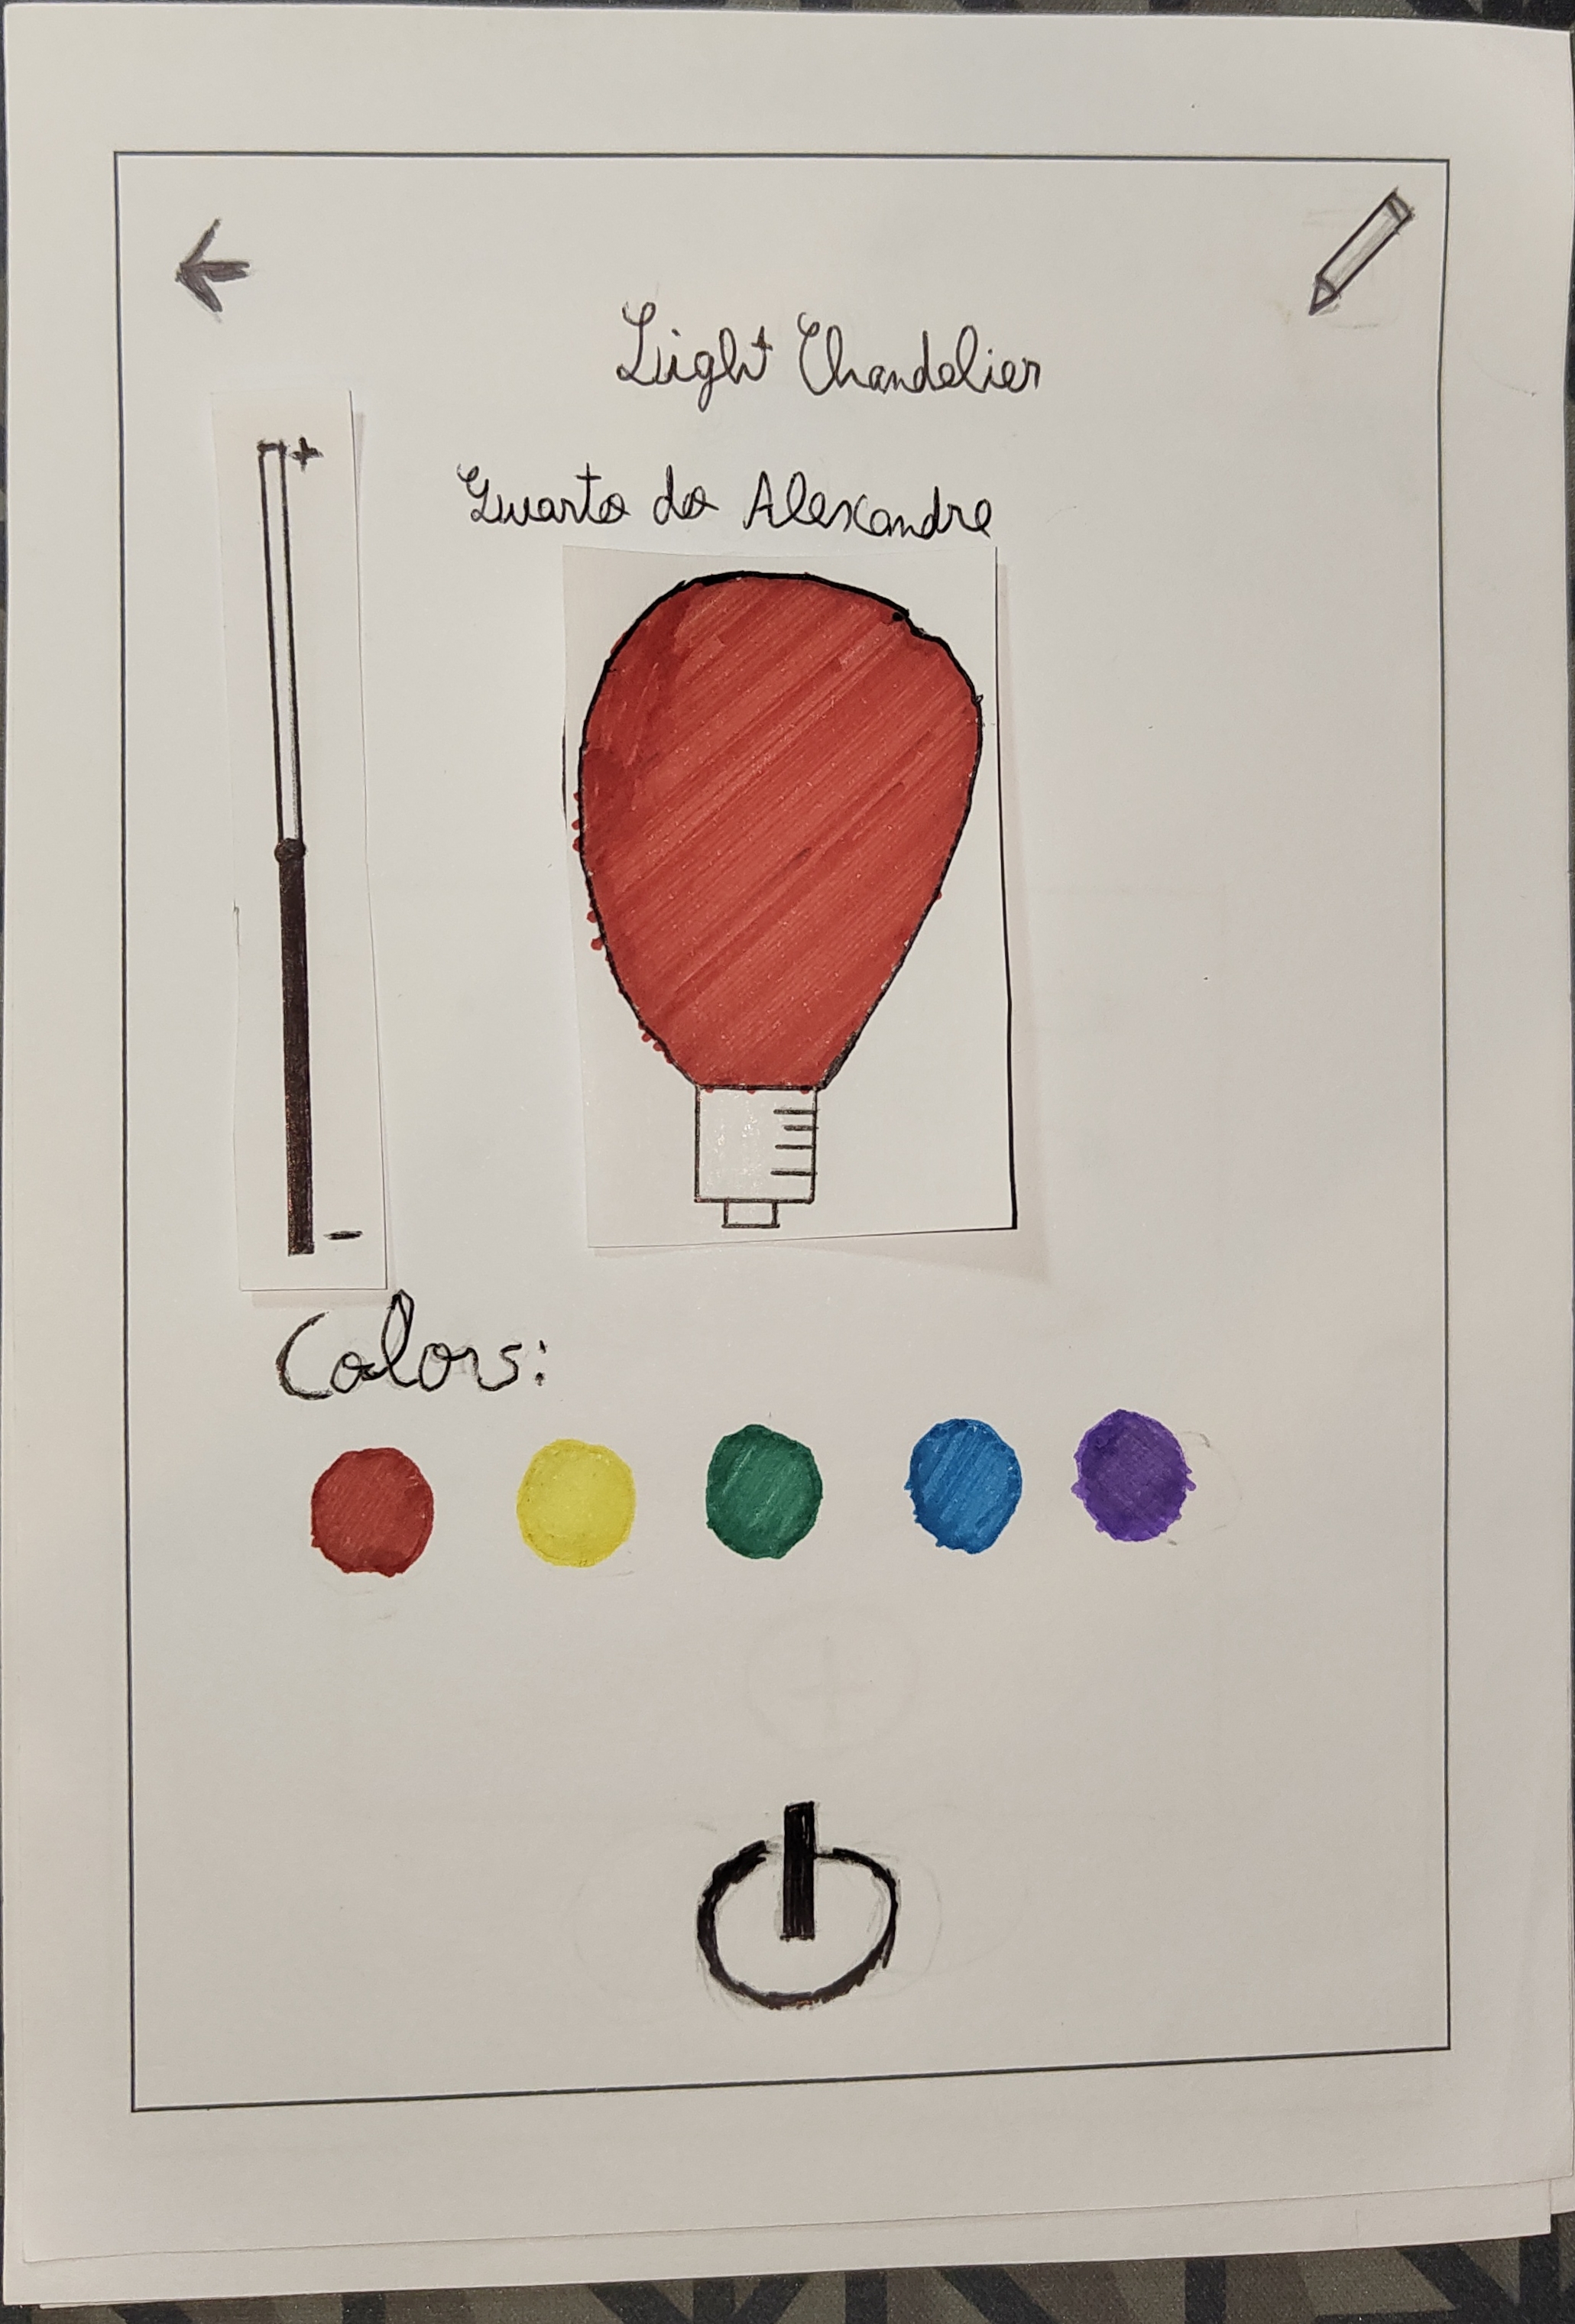 Light Chandelier
Quarto do Alexandre
+
-
Colors: